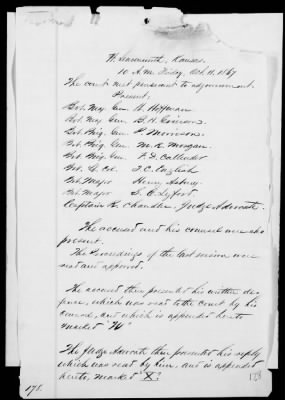 Ft. Leavenworth, Kansas.
10 A.M. Friday, Oct. 11, 1867
The court met pursuant to adjournment.
Present,
Bvt. Maj. Gen. W. Hoffman
Bvt. Maj. Gen. B. H. Grierson
Bvt. Brig. Gen. P. Morrison
Bvt. Brig. Gen. M. R. Morgan.
Bvt. Brig. Gen. F. D. Callender
Bvt. Lt. Col. T. C. English
Bvt. Major Henry Asbury
Bvt. Major S. C. Lyford
Captain R. Chandler, Judge Advocate.
The accused and his counsel were also
present.
The Proceedings of the last session, were
read and approved.
The accused then presented his written de-
fence, which was read to the court by his
counsel, and which is appended hereto
marked "W"
The Judge Advocate then presented his reply
which was read by him, and is appended
hereto, marked "X".
178.